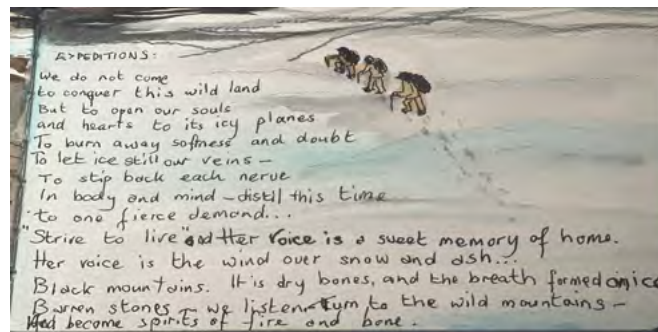 EXPEDITIONS:
We do not come
to conquer this wild land
But to open our souls
and hearts to its icy planes
To burn away softness and doubt
To let ice still our veins –
To stip back each nerve
In body and mind – distil this time
to one fierce demand...
"Strive to live" and Her voice is a sweet memory of home.
Her voice is the wind over snow and ash...
Black mountains. It is dry bones, and the breath formed on ice
Barren stones – we listen – turn to the wild mountains –
And become spirits of fire and bone.